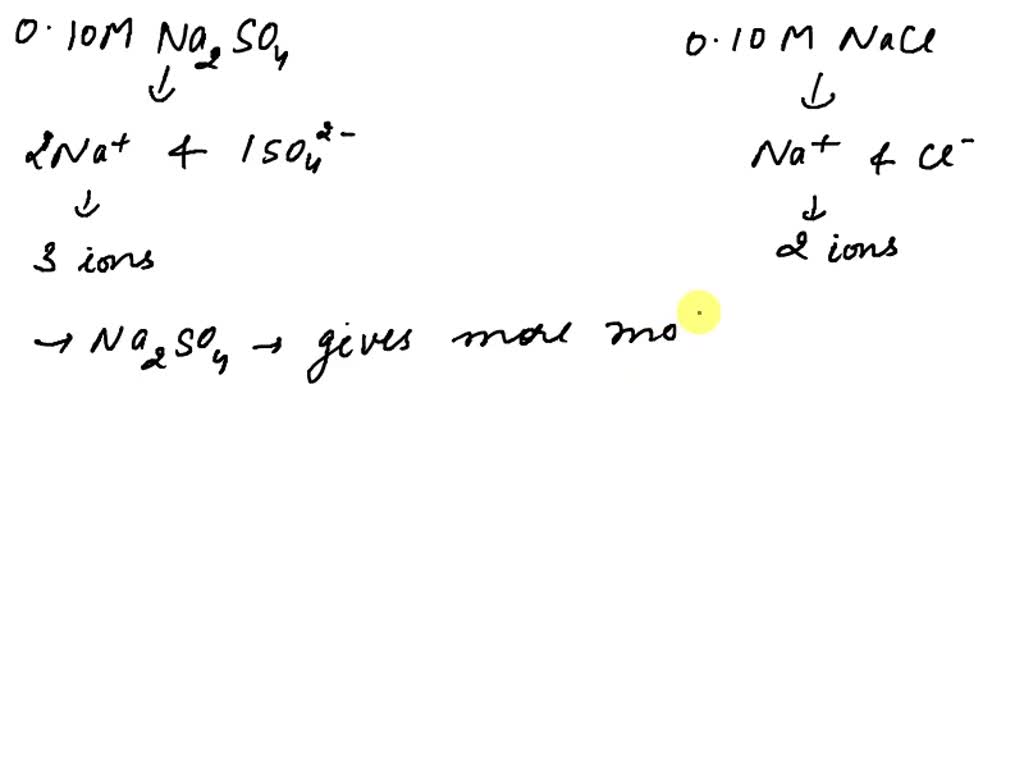 0.10M Na₂SO₄
↓
2Na⁺ + 1SO₄²⁻
↓
3 ions
0.10 M NaCl
↓
Na⁺ + Cl⁻
↓
2 ions
→ Na₂SO₄ → gives more mo